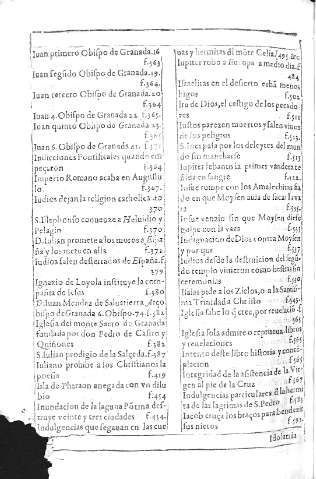 Iuan primero Obispo de Granada.16
f.363
Iuan segũdo Obispo de Granada.19.
f.364.
Iuan tercero Obispo de Granada.20
f.364
Iuan 4. Obispo de Granada 22. f.365.
Iuan quinto Obispo de Granada
Iuan 6. Obispo de Granada 41. f.371
Indicciones Pontificales quando em
peçaron f.364
Imperio Romano acaba en Augustu
lo. f.367.
Iudios dejan la religion catholica
370
S. Ilephonso conuence a Heluidio y
Pelagio f.370
D. Iulian promete a los moros a Espa
ña y los mete en ella f.372
Iudios salen desterrados de España. f.
379
Ignacio de Loyola instituye la com
pañia de Iesus f.380
D. Iuan Mendez de Salvatierra, Arço
bispo de Granada 6. Obispo. 74. f.382
Iglesia del monte Sacro de Granada
fundada por don Pedro de Castro y
Quiñones f.382
S. Iulian prodigio de la Salçeda. f.387
Iuliano prohibe a los Christianos la
poesia f.419
Isla de Pharaon anegada con vn dilu
bio f.454
Inundacion de la laguna Põtina des-
truye veinte y tres ciudades f.454.
Indulgencias que se ganan en las cue
uas y hermitas del mõte Celia
Iupiter robo a Europa a medio dia. f.
484
Israelitas en el desierto
f.502.
Ira de Dios, el castigo de los pecado
res f.512
Iustos parezen muertos y salen viuos
en los peligros f.513.
S. Ines passa por los deleytes del mun
do sin mancharse f.513
Iupiter
en sangre
Iosue rompe con los Amalechitas
do en que Moysen auia de sacar
f.535.
Iosue venzio sin que Moysen diese
golpe con la vara f.535
Indignacion de Dios contra Moysen
y por que f.537
Iudios desde la destruicion del segũ
do templo vinieron
ferminedad
Isaias pide a los Zielos, o a la Santissi
ma Trinidad a Christo f.545.
Iglesia
365
Iglesia sola admite o reprueua, libros
y reuelaciones f.565
Intento deste libro historia y contẽ-
placion f.565
Integridad de la asistencia de la Vir-
gen al pie de la Cruz f.567
Indulgencias particulares a la hermi
ta de las lagrimas de S. Pedro
Iacob cruça los braços para bendezir
sus nietos f.592.
Idolatria